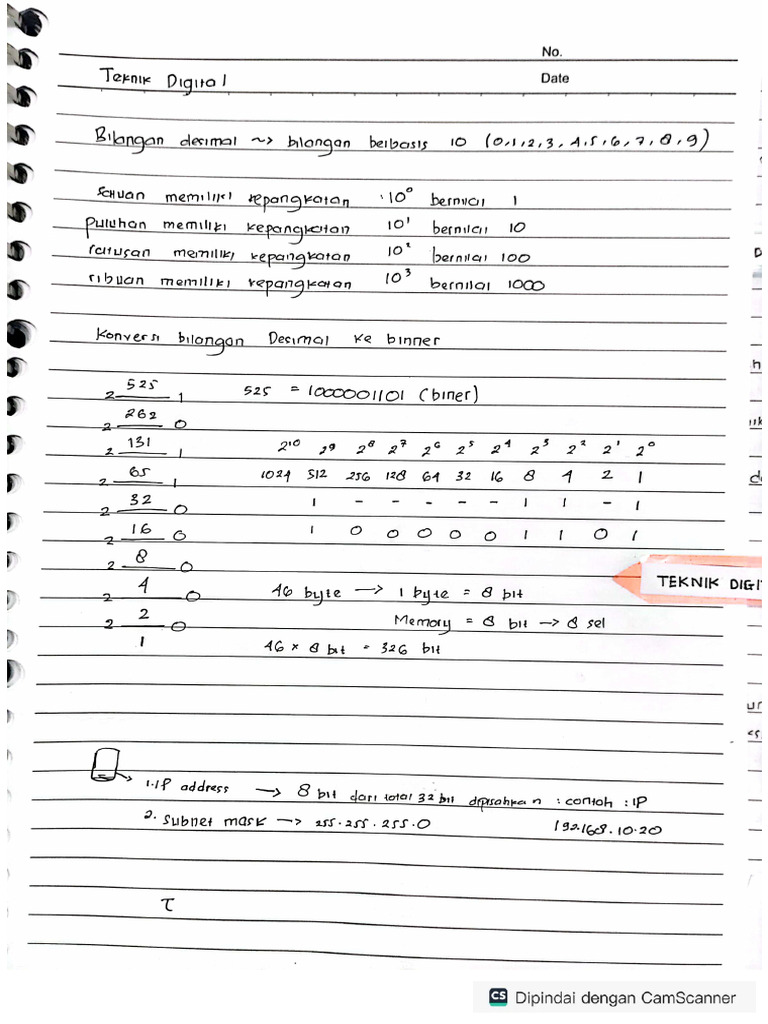 No.
Teknik Digital
Date
Bilangan desimal ~> bilangan berbasis 10 (0,1,2,3,4,5,6,7,8,9)
Satuan memiliki kepangkatan 10⁰ bernilai 1
puluhan memiliki kepangkatan 10¹ bernilai 10
ratusan memiliki kepangkatan 10² bernilai 100
ribuan memiliki kepangkatan 10³ bernilai 1000
Konversi bilangan Desimal ke binner
2 525 1 525 = 1000001101 (biner)
2 262 0
2 131 1 2¹⁰ 2⁹ 2⁸ 2⁷ 2⁶ 2⁵ 2⁴ 2³ 2² 2¹ 2⁰
2 65 1 1024 512 256 128 64 32 16 8 4 2 1
2 32 0 1 - - - - - 1 1 - 1
2 16 0 1 0 0 0 0 0 1 1 0 1
2 8 0
TEKNIK DIGI
2 4 0 46 byte → 1 byte = 8 bit
2 2 0 Memory = 8 bit → 8 sel
1 46 × 8 bit = 326 bit
1. IP address → 8 bit dari total 32 bit dipisahkan : contoh : IP
2. subnet mask → 255.255.255.0 192.168.10.20
τ
CS Dipindai dengan CamScanner